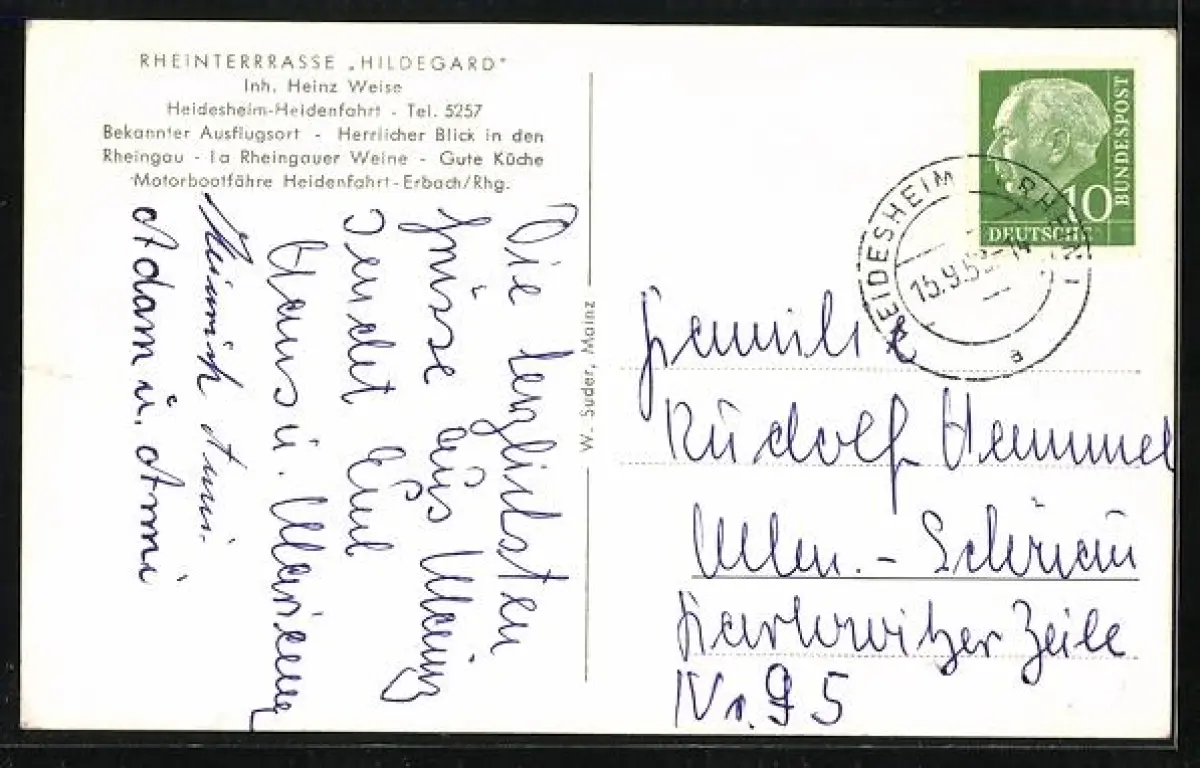 RHEINTERRRASSE „HILDEGARD"
Inh. Heinz Weise
Heidesheim-Heidenfahrt - Tel. 5257
Bekannter Ausflugsort - Herrlicher Blick in den
Rheingau - Ia Rheingauer Weine - Gute Küche
Motorbootfähre Heidenfahrt-Erbach/Rhg.
Die herzlichsten
Grüsse aus Mainz
sendet Euch
Hans u.
Adam u. Anni
W. Suder, Mainz
DEUTSCHE
BUNDESPOST
10
HEIDESHEIM (RHEIN)
15.9.5
a
Familie
Rudolf Hammel
Zeile
Nr. 95